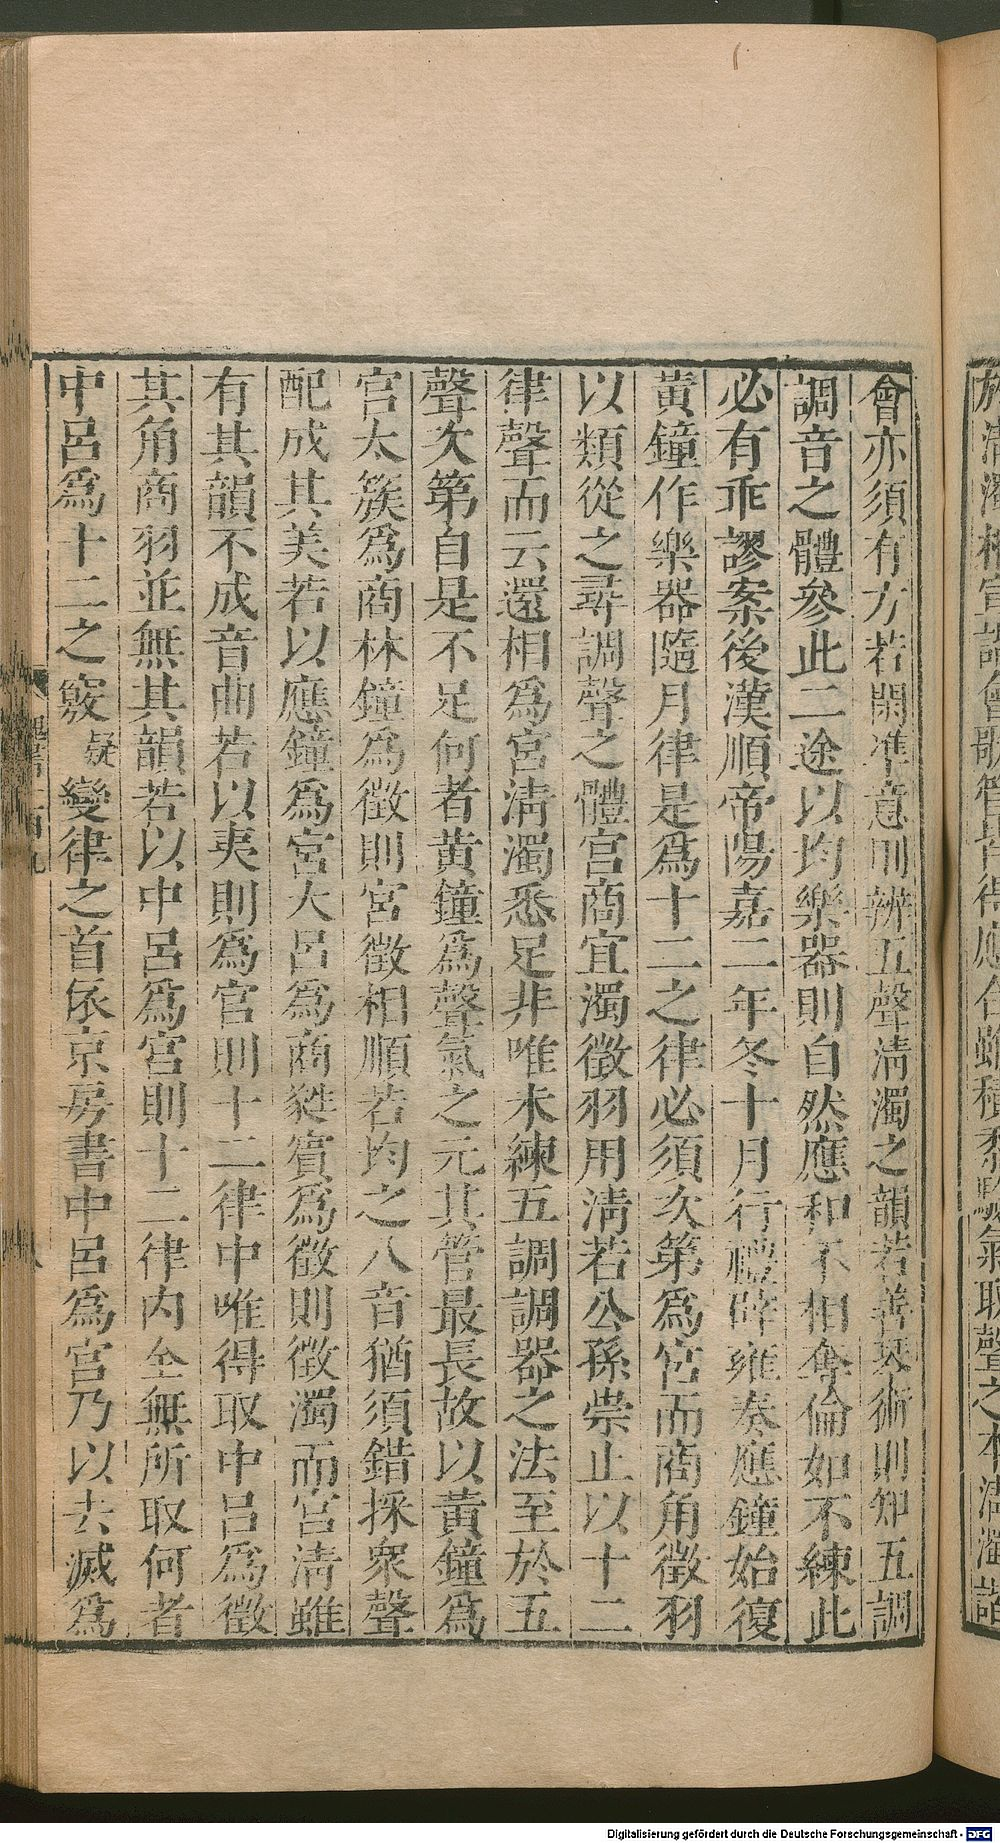 會亦須有方若閑準意則辨五聲清濁之韻若善琴術則知五調
調音之體參此二途以均樂器則自然應和不相奪倫如不練此
必有乖謬案後漢順帝陽嘉二年冬十月行禮辟雍奏應鐘始復
黃鐘作樂器隨月律是爲十二之律必須次第爲宮而商角徵羽
以類從之尋調聲之體宮商宜濁徵羽用清若公孫崇止以十二
律聲而云還相爲宮清濁悉足非唯未練五調調器之法至於五
聲次第自是不足何者黃鐘爲聲氣之元其管最長故以黃鐘爲
宮太簇爲商林鐘爲徵則宮徵相順若均之八音猶須錯採衆聲
配成其美若以應鐘爲宮大呂爲商蕤賓爲徵則徵濁而宮清雖
有其韻不成音曲若以夷則爲宮則十二律中唯得取中呂爲徵
其角商羽並無其韻若以中呂爲宮則十二律內全無所取何者
中呂爲十二之竅疑變律之首依京房書中呂爲宮乃以去滅爲
Digitalisierung gefördert durch die Deutsche Forschungsgemeinschaft - DFG